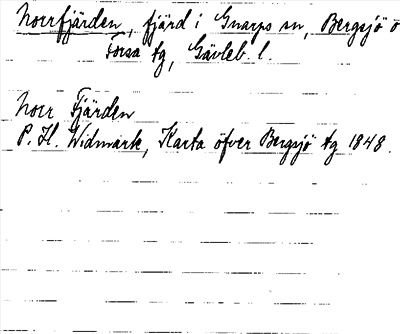 Norrfjärden, fjärd i Gnarps sn, Bergsjö o
Forsa tg, Gävleb. l.
Norr Fjärden
P. H. Widmark, Karta öfver Bergsjö tg 1848.